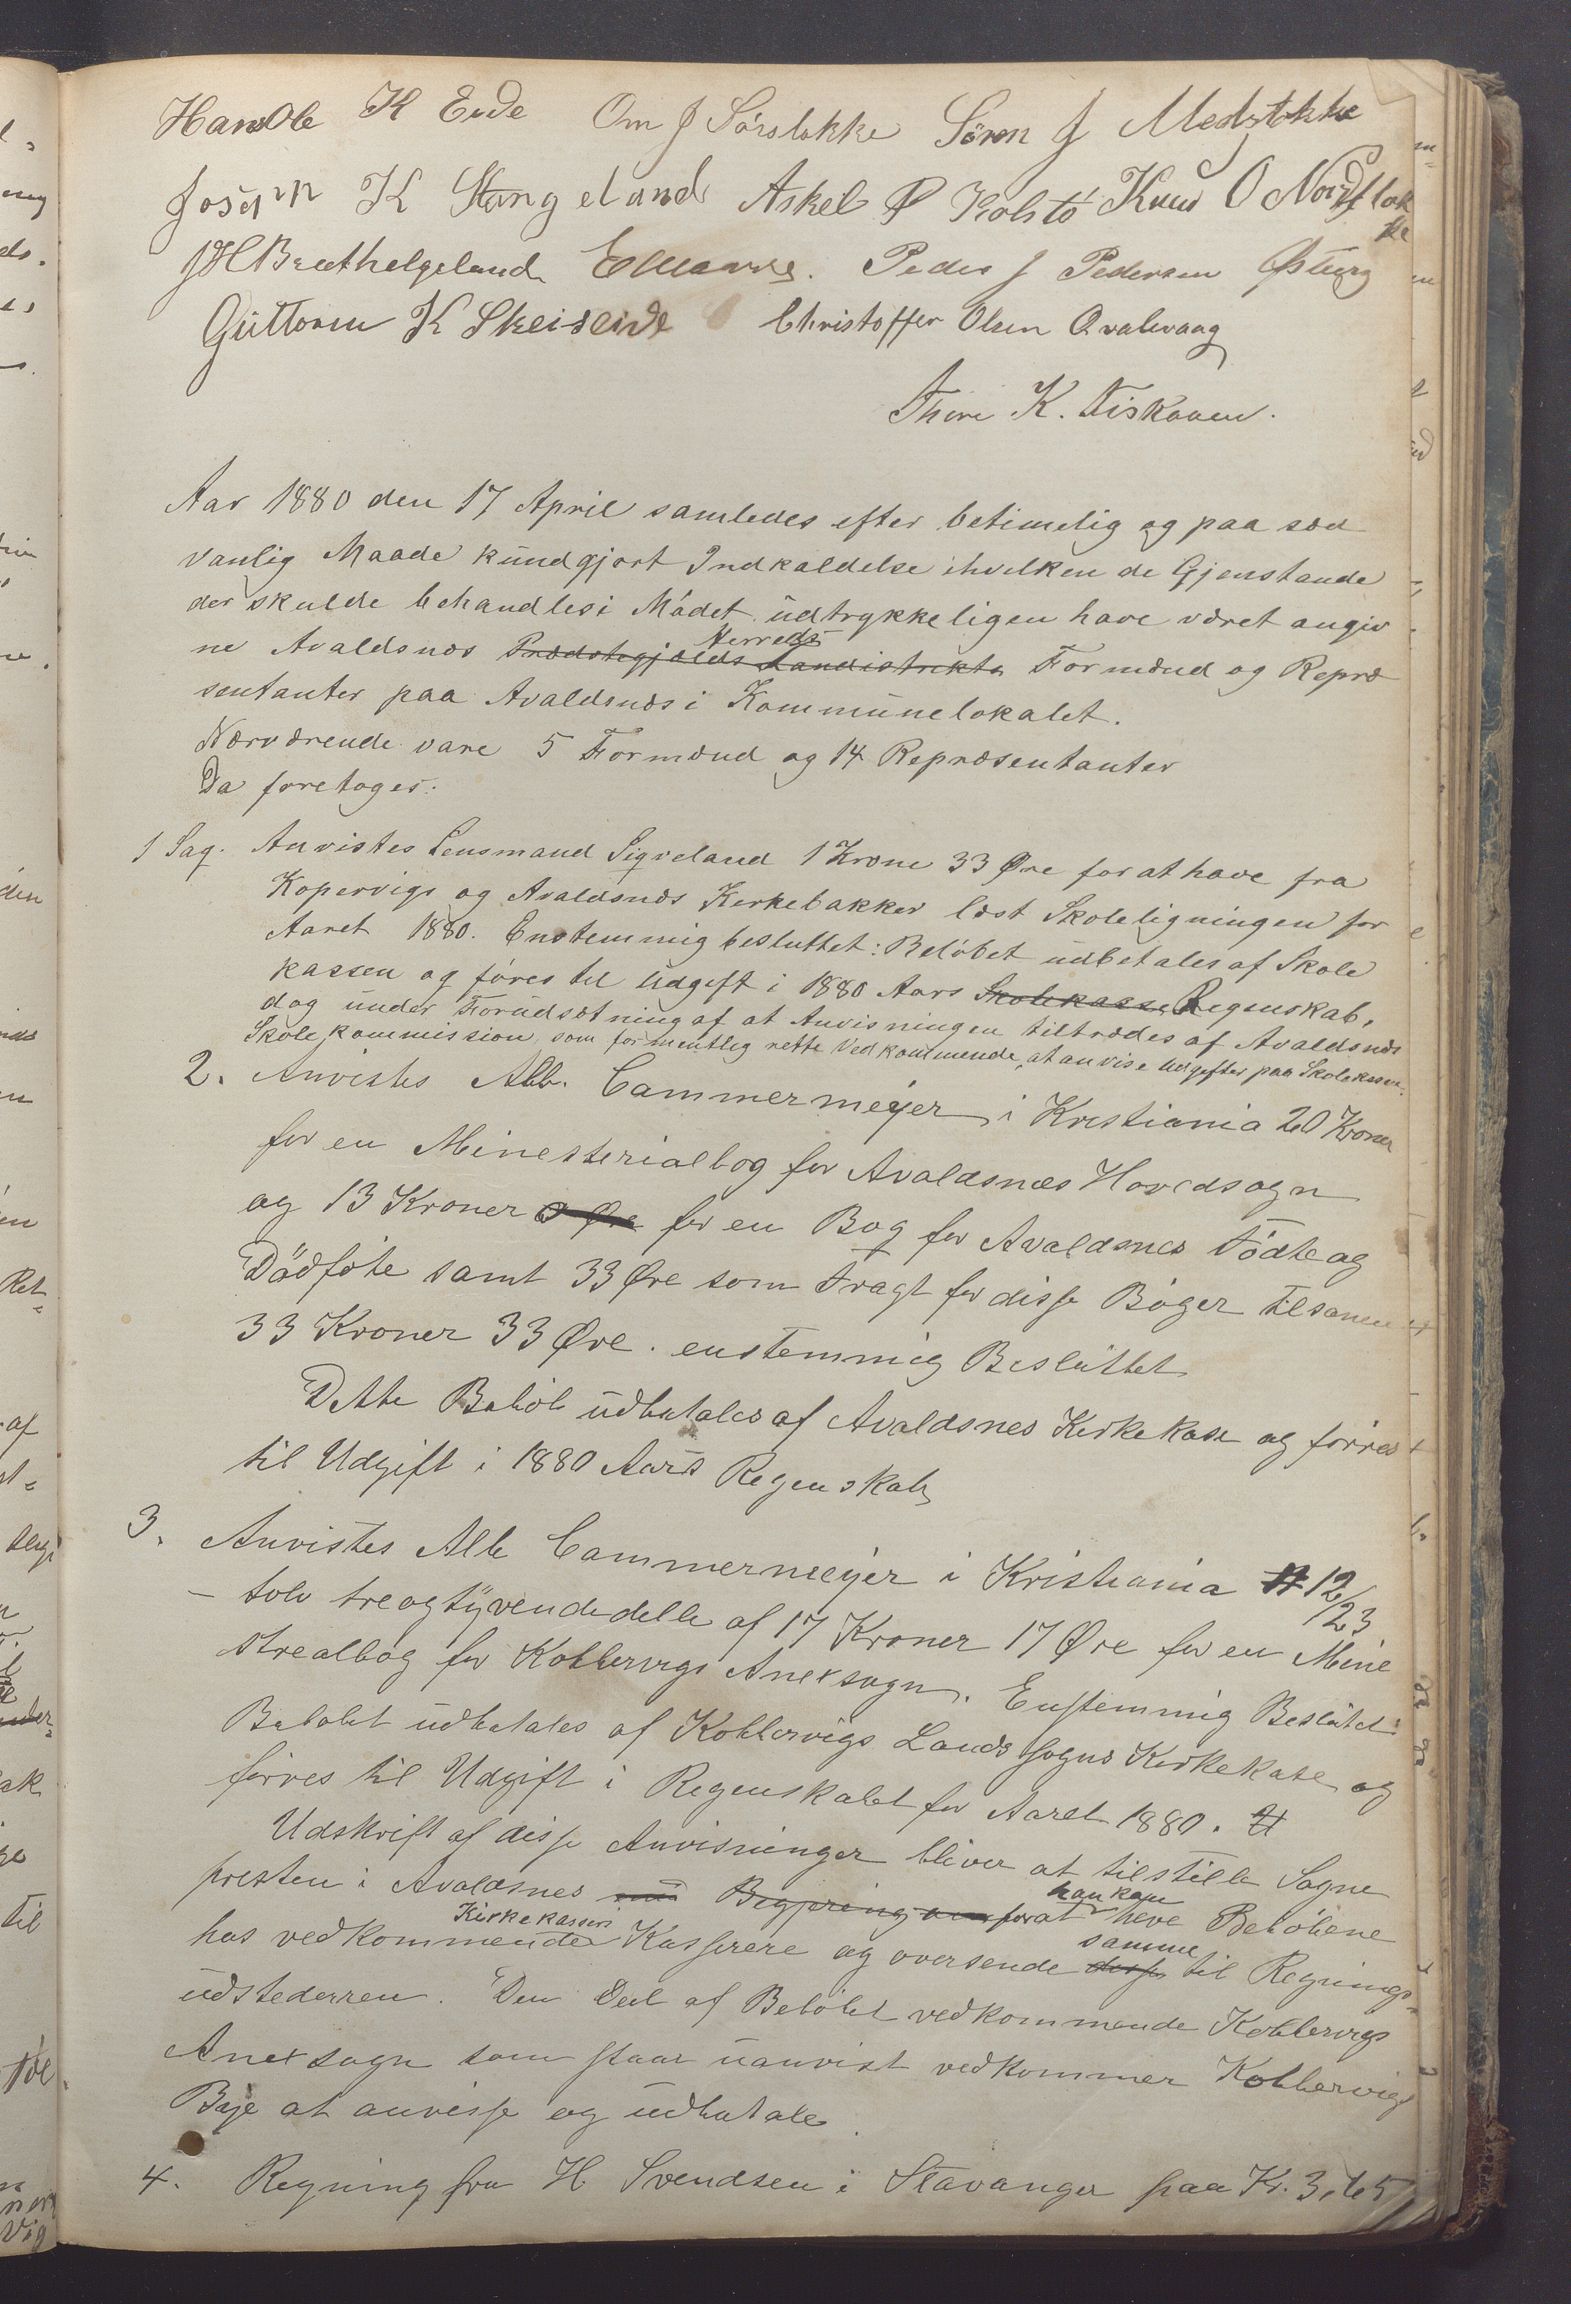 Hans Ole K Eide Om J Sörstokke Sören J Medstokke
Josef K Stangeland Askel P Kolstö Knud O Nordstok
ke
JH Brekthelgeland Peder J Pedersen Østeng
Guttorm K Skeiseide Christoffer Olsen Qvalevaag
Thore K. Fiskaaen.
Aar 1880 den 17 April samledes efter betimelig og paa sæd
vanlig Maade kundgjort Indkaldelse ihvilken de Gjenstande
der skulde behandles i Mödet udtrykkeligen have været angiv
ne Avaldsnæs Præstegjælds Landistrikts Herreds Formænd og Repræ
sentanter paa Avaldsnæs i Kommunelokalet.
Nærværende vare 5 Formænd og 14 Repræsentanter
Da foretoges:
1 Sag. Anvistes Lensmand Sigveland 1 Krone 33 Øre for at have fra
Kopervigs og Avaldsnæs Kirkebakker læst Skoleligningen for
Aaret 1880. Enstemmig besluttet: Belöbet udbetales af Skole
kassen og föres til Udgift i 1880 Aars Skolekasse Regnskab,
dog under Forudsætning af at Anvisningen tiltrædes af Avaldsnæs
Skolekommission, som formentlig rette Vedkommende, at anvise Udgifter paa Skolekassen.
2. Anvistes Alb. Cammermeÿer i Kristiania 20 Kroner
for en Minesterialbog for Avaldsnæs Hovedsogn
og 13 Kroner 3 Øre for en Bog for Avaldsnes Födte og
Dödföte samt 33 Øre som Fragt for disse Böger tilsamen
33 Kroner 33 Øre. enstemmig Besluttet
Dette Belöb udbetales af Avaldsnes Kirkekase og förres
til Udgift i 1880 Aars Regenskab
3. Anvistes Alb Cammermeÿer i Kristiania 12/23
- tolv treogtÿvendedelle af 17 Kroner 17 Øre for en Mine
strealbog for Kobbervigs Anexsogn. Enstemmig Beslutet:
Belöbet udbetales af Kobbervigs Landssogns Kirkekase og
förres til Udgift i Regenskabet for Aaret 1880.
Udskrift af disse Anvisninger bliver at tilstille Sogne
presten i Avaldsnes Begjering om forat han kan heve Belöbene
hos vedkommende Kirkekasses Kasserere og oversende disse samme til Regnings=
udstederren. Den Deel af Belöbet vedkommende Kobbervigs
Anexsogn som staar uanvist vedkommer Kobbervigs
Bÿe at anvisse og udbetale.
4. Regning fra H Svendsen i Stavanger paa Kr. 3,65